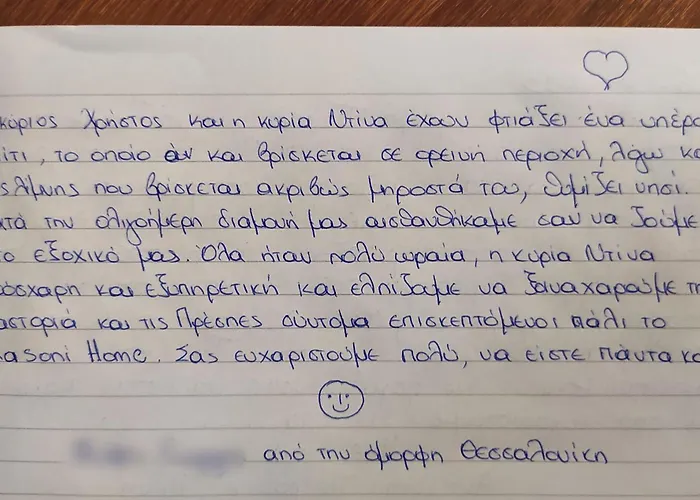 κύριος Χρήστος και η κυρία Ντίνα έχουν φτιάξει ένα υπέρο
ίτι, το οποίο αν και βρίσκεται σε ορεινή περιοχή, λόγω κα
ς λίμνης που βρίσκεται ακριβώς μπροστά του, θυμίζει νησί.
ατά την ολιγοήμερη διαμονή μας αισθανθήκαμε σαν να ζούμε
ο εξοχικό μας. Όλα ήταν πολύ ωραία, η κυρία Ντίνα
όσχαρη και εξυπηρετική και ελπίζαμε να ξαναχαρούμε τη
αστοριά και τις Πρέσπες σύντομα επισκεπτόμενοι πάλι το
asoni Home. Σας ευχαριστούμε πολύ, να είστε πάντα κα
από την όμορφη Θεσσαλονίκη